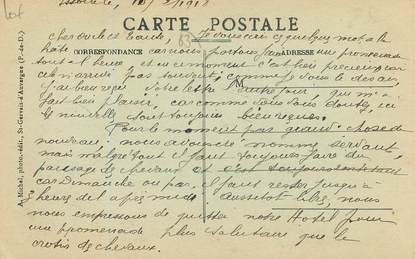 Lot
10/2/1918
CARTE POSTALE
CORRESPONDANCE
ADRESSE
cher oncle et Tante, Je vous écris quelques mots à la
hâte car nous partons faire une promenade
tout à l'heure et en ce moment c'est bien précieux car
ces n'arrive pas souvent comme je vous le
J'ai bien reçu votre lettre l'autre jour qui m'a
fait bien plaisir, car comme vous vous doutez, ici
les nouvelles sont toujours bien reçues.
Pour le moment pas grand chose de
nouveau. nous avons été nommé servant,
mais malgré tout il faut toujours faire du
pansage de chevaux et c'est toujours
cas Dimanche ou pas. Il faut rester jusqu'à
heures de l'après midi. Aussitôt libre, nous
nous empressons de quitter notre Hotel pour
une promenade plus salutaire que le
crotin de chevaux.
A. Michel, photo.-édit., St-Gervais-d'Auvergne (P.-de-D.)